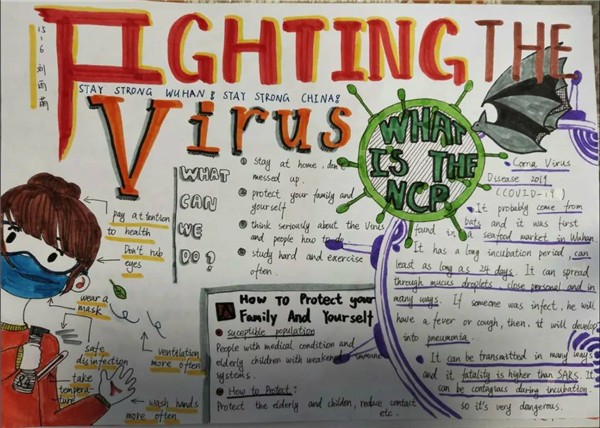 15-6
FIGHTING THE
Virus
STAY STRONG WUHAN! STAY STRONG CHINA!
WHAT
CAN
WE
DO?
stay at home, don't
messed up.
protect your family and
yourself
think seriously about the virus
and people how to do
study hard and exercise
often.
WHAT
IS THE
NCP
Corna Virus
Disease 2019
(COVID-19)
It probably come from
bats and it was first
found in a seafood market in Wuhan.
It has a long incubation period, can
least as long as 24 days. It can spread
through mucus droplets, close personal and in
many ways. If someone was infect, he will
have a fever or cough, then, it will develop
into pneumonia.
It can be transmitted in many ways
and it fatality is higher than SARS. It
can be contagious daring incubation
so it's very dangerous.
pay attention
to health
Don't rub
eyes
wear a
mask
safe
disinfection
ventilation
more often
take
tempera-
ture
wash hands
more often
How To Protect your
Family And Yourself
suceptible population
People with medical condition and
elderly children with weakened immune
systems.
How to Protect:
Protect the elderly and childen, reduce contact
etc.